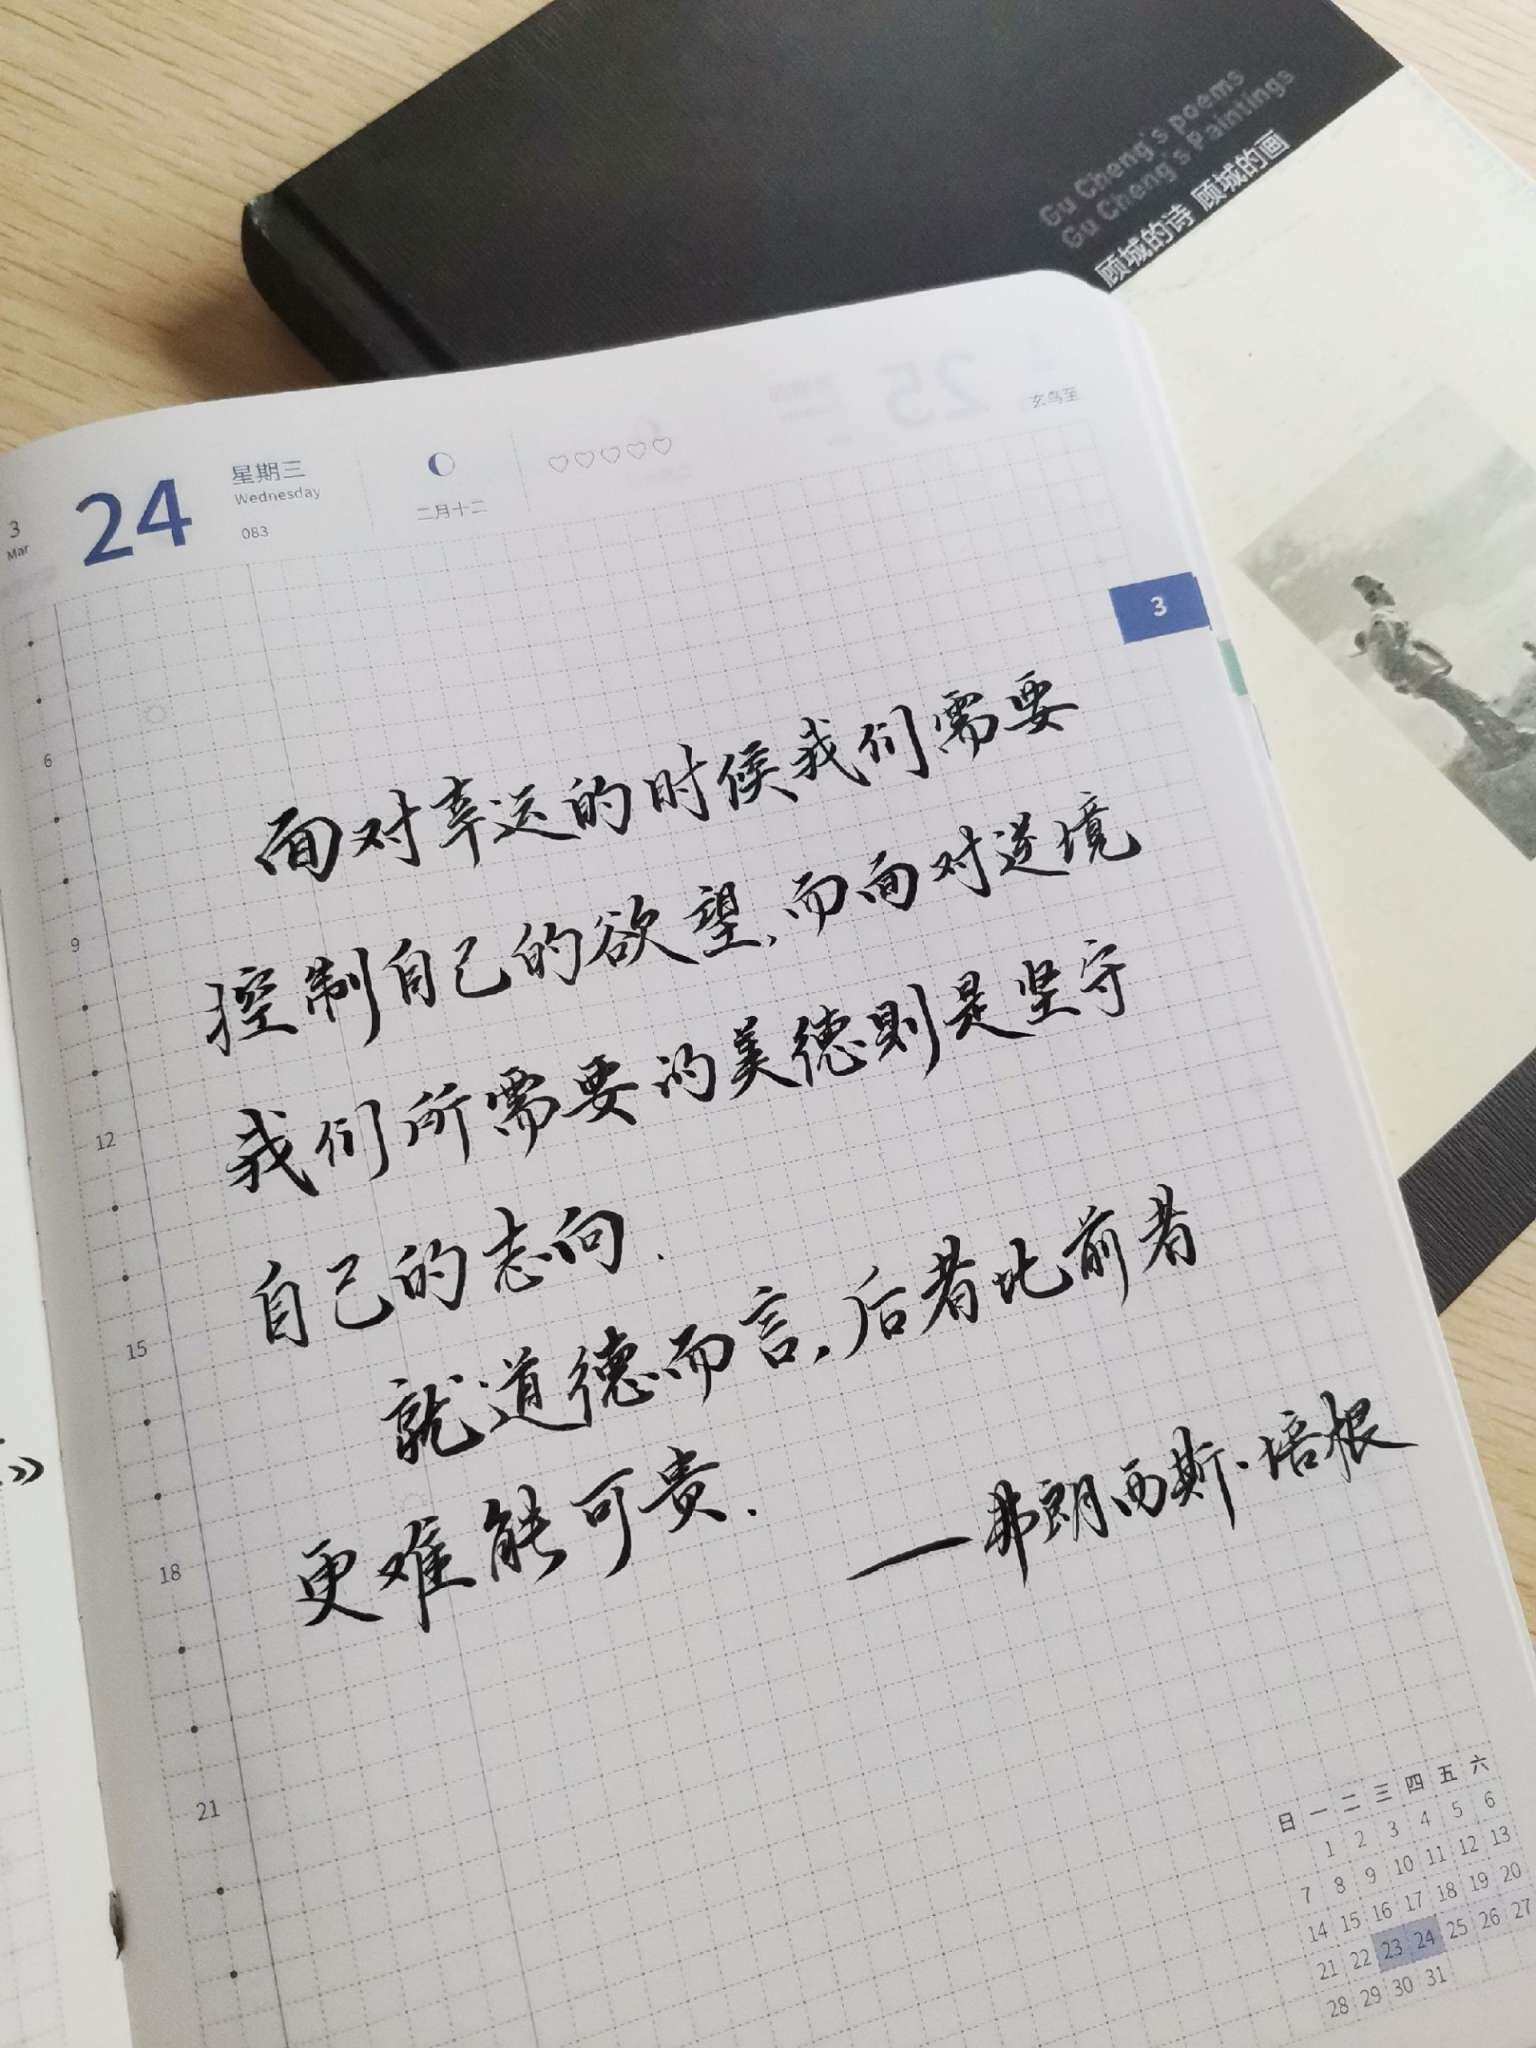 Gu Cheng's poems
Gu Cheng's Paintings
顾城的诗 顾城的画
25
玄鸟至
3
Mar
24
星期三
Wednesday
083
二月十二
3
6
9
12
15
18
21
面对幸运的时候我们需要
控制自己的欲望,而面对逆境
我们所需要的美德则是坚守
自己的志向.
就道德而言,后者比前者
更难能可贵.
—弗朗西斯·培根
》
日 一 二 三 四 五 六
1 2 3 4 5 6
7 8 9 10 11 12 13
14 15 16 17 18 19 20
21 22 23 24 25 26 27
28 29 30 31